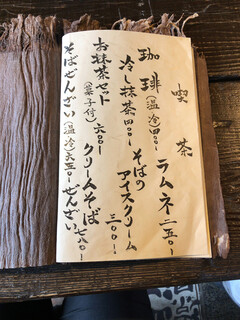 喫茶
ラムネ 二五〇-
珈琲(温冷)四〇〇-
そばのアイスクリーム 三〇〇-
冷し抹茶 四〇〇-
お抹茶セット(菓子付)六〇〇-
クリームそばぜんざい 七八〇-
そばぜんざい(温冷)六五〇-